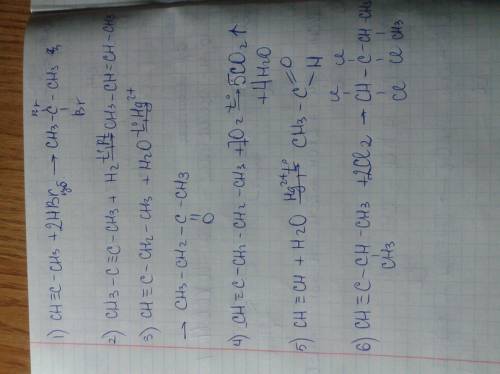 1) CH≡C-CH3 + 2HBr изб → CH3-C-CH3
Br
Br
2) CH3-C≡C-CH3 + H2 t°Pt→ CH3-CH=CH-CH3
3) CH≡C-CH2-CH3 + H2O t°Hg2+→
→ CH3-CH2-C-CH3
O
4) CH≡C-CH2-CH2-CH3 + 7O2 t°→ 5CO2↑
+4H2O
5) CH≡CH + H2O Hg2+ t°→ CH3-C
O
H
6) CH≡C-CH-CH3 + 2Cl2 → CH-C-CH-CH3
CH3
Cl Cl
Cl Cl CH3